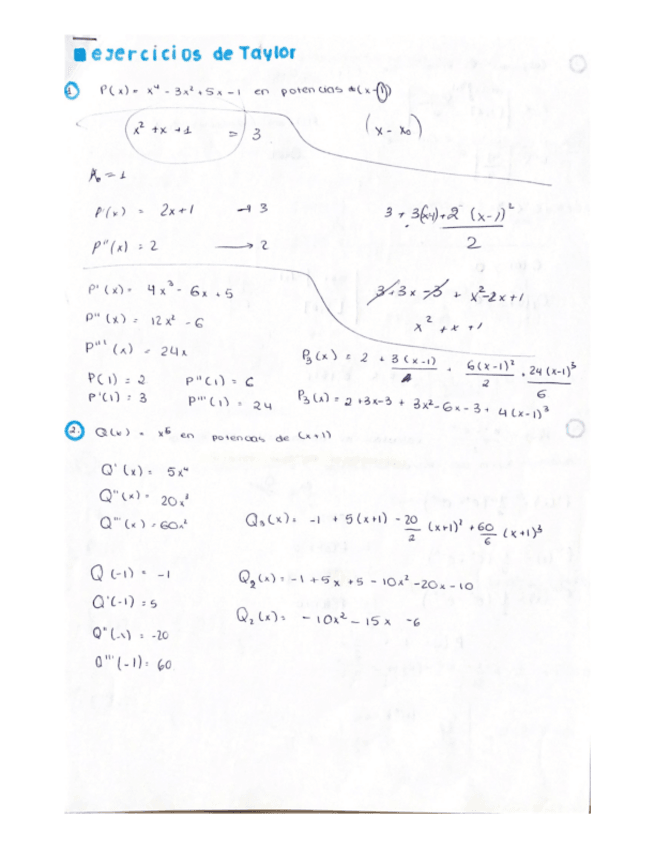 ejercicios de Taylor
1. P(x) = x⁴ - 3x² + 5x - 1 en potencias (x-1)
x² + x + 1 = 3
(x - x₀)
P'(x) = 2x+1 → 3
3 + 3(x-1) + 2 (x-1)²
P''(x) = 2 → 2
2
P'(x) = 4x³ - 6x + 5
3 + 3x - 3 + x² - 2x + 1
P''(x) = 12x² - 6
x² + x + 1
P'''(x) = 24x
P₃(x) = 2 + 3(x-1) + 6(x-1)²/2 + 24(x-1)³/6
P(1) = 2 P''(1) = 6
P'(1) = 3 P'''(1) = 24
P₃(x) = 2 + 3x - 3 + 3x² - 6x - 3 + 4(x-1)³
2. Q(x) = x⁵ en potencias de (x+1)
Q'(x) = 5x⁴
Q''(x) = 20x³
Q'''(x) = 60x²
Q₃(x) = -1 + 5(x+1) - 20/2 (x+1)² + 60/6 (x+1)³
Q(-1) = -1
Q₂(x) = -1 + 5x + 5 - 10x² - 20x - 10
Q'(-1) = 5
Q₂(x) = -10x² - 15x - 6
Q''(-1) = -20
Q'''(-1) = 60